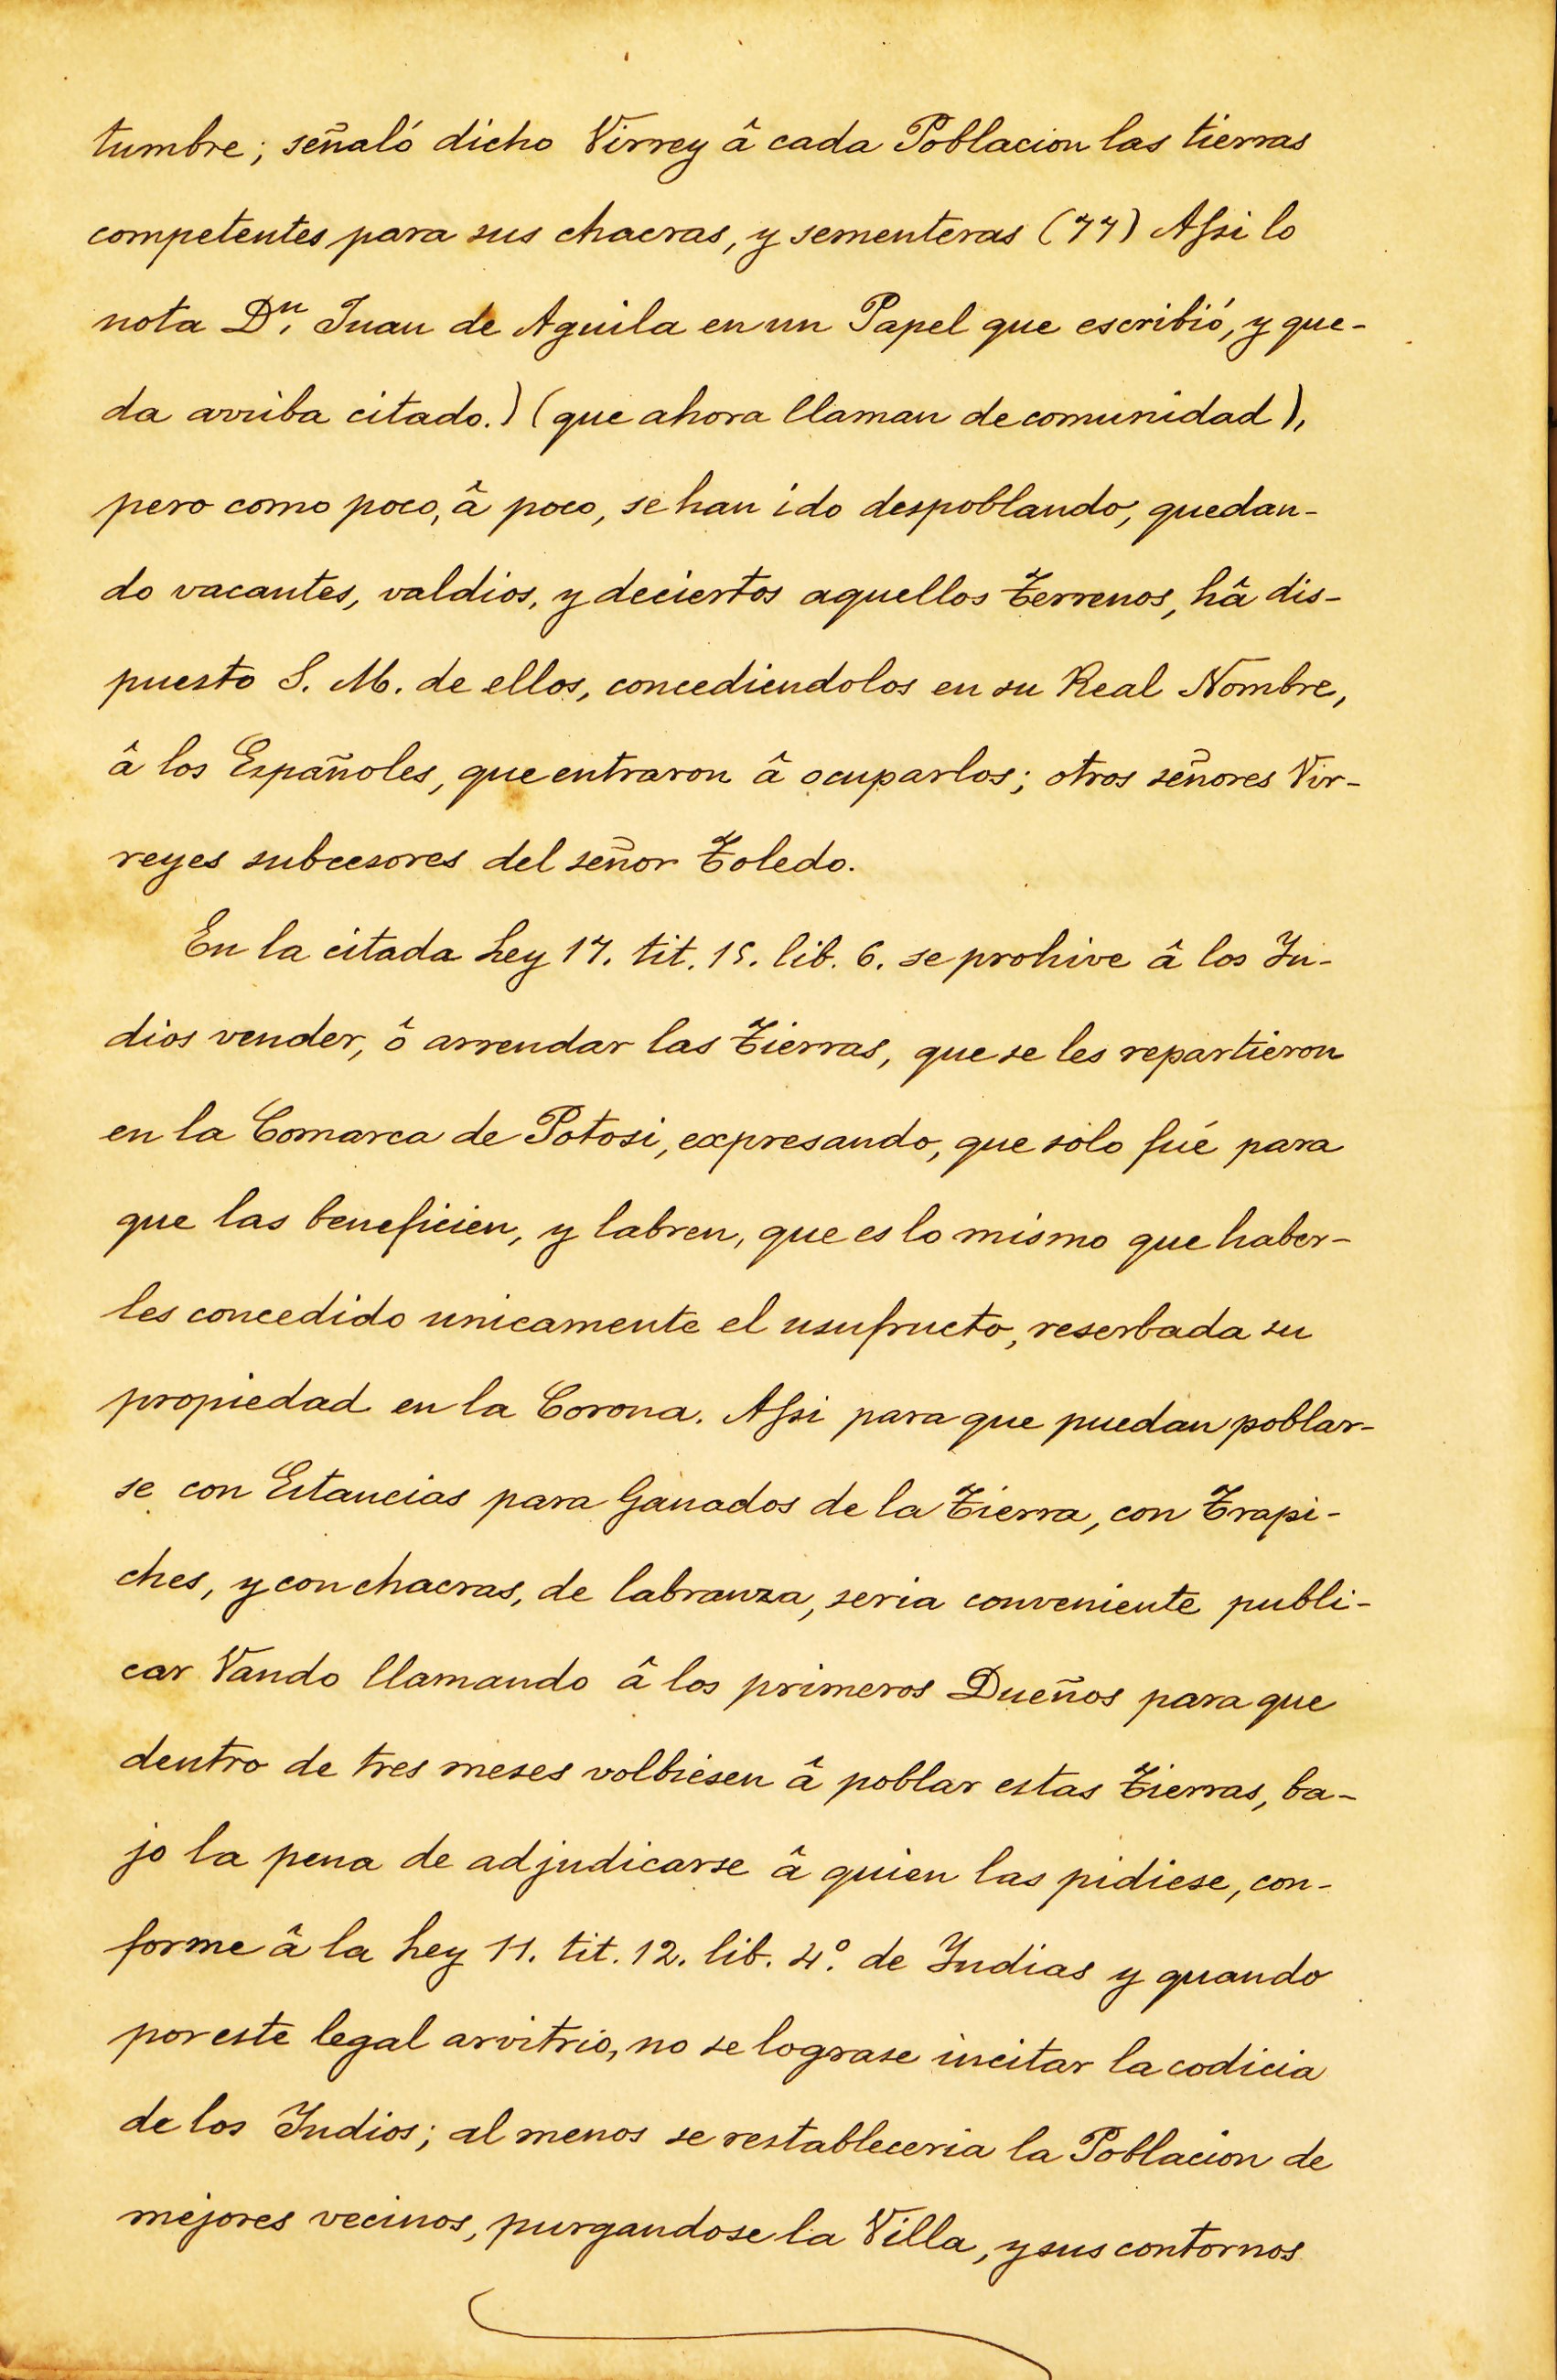 tumbre; señaló dicho Virrey â cada Poblacion las tierras
competentes para sus chacras, y sementeras (77) Assi lo
nota Dⁿ. Juan de Aguila en un Papel que escribió, y que-
da arriba citado.) (que ahora llaman de comunidad),
pero como poco, â poco, se han ido despoblando, quedan-
do vacantes, valdios, y deciertos aquellos Terrenos, hâ dis-
puesto S. M. de ellos, concediendolos en su Real Nombre,
â los Españoles, que entraron â ocuparlos; otros señores Vir-
reyes subcesores del señor Toledo.
En la citada Ley 17. tit. 15. lib. 6. se prohive â los In-
dios vender, ô arrendar las Tierras, que se les repartieron
en la Comarca de Potosi, expresando, que solo fué para
que las beneficien, y labren, que es lo mismo que haber-
les concedido unicamente el usufructo, reserbada su
propiedad en la Corona. Assi para que puedan poblar-
se con Estancias para Ganados de la Tierra, con Trapi-
ches, y con chacras, de labranza, seria conveniente publi-
car Vando llamando â los primeros Dueños para que
dentro de tres meses volbiesen â poblar estas Tierras, ba-
jo la pena de adjudicarse â quien las pidiese, con-
forme â la Ley 11. tit. 12. lib. 4º. de Indias y quando
por este legal arvitrio, no se lograse incitar la codicia
de los Indios; al menos se restableceria la Poblacion de
mejores vecinos, purgandose la Villa, y sus contornos